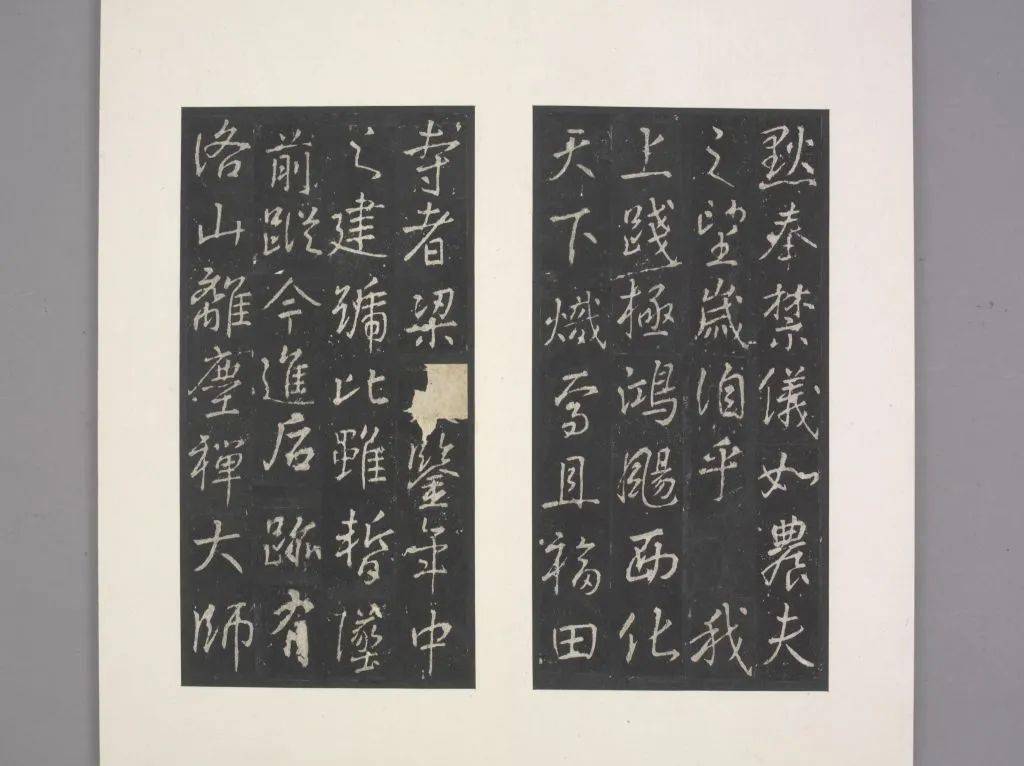 默奉禁儀如農夫
之望歲洎乎我
上踐極鴻颺西化
天下熾焉且福田
寺者梁鑒年中
之建號比雖暫墜
前蹤今進后跡有
洛山離塵禪大師